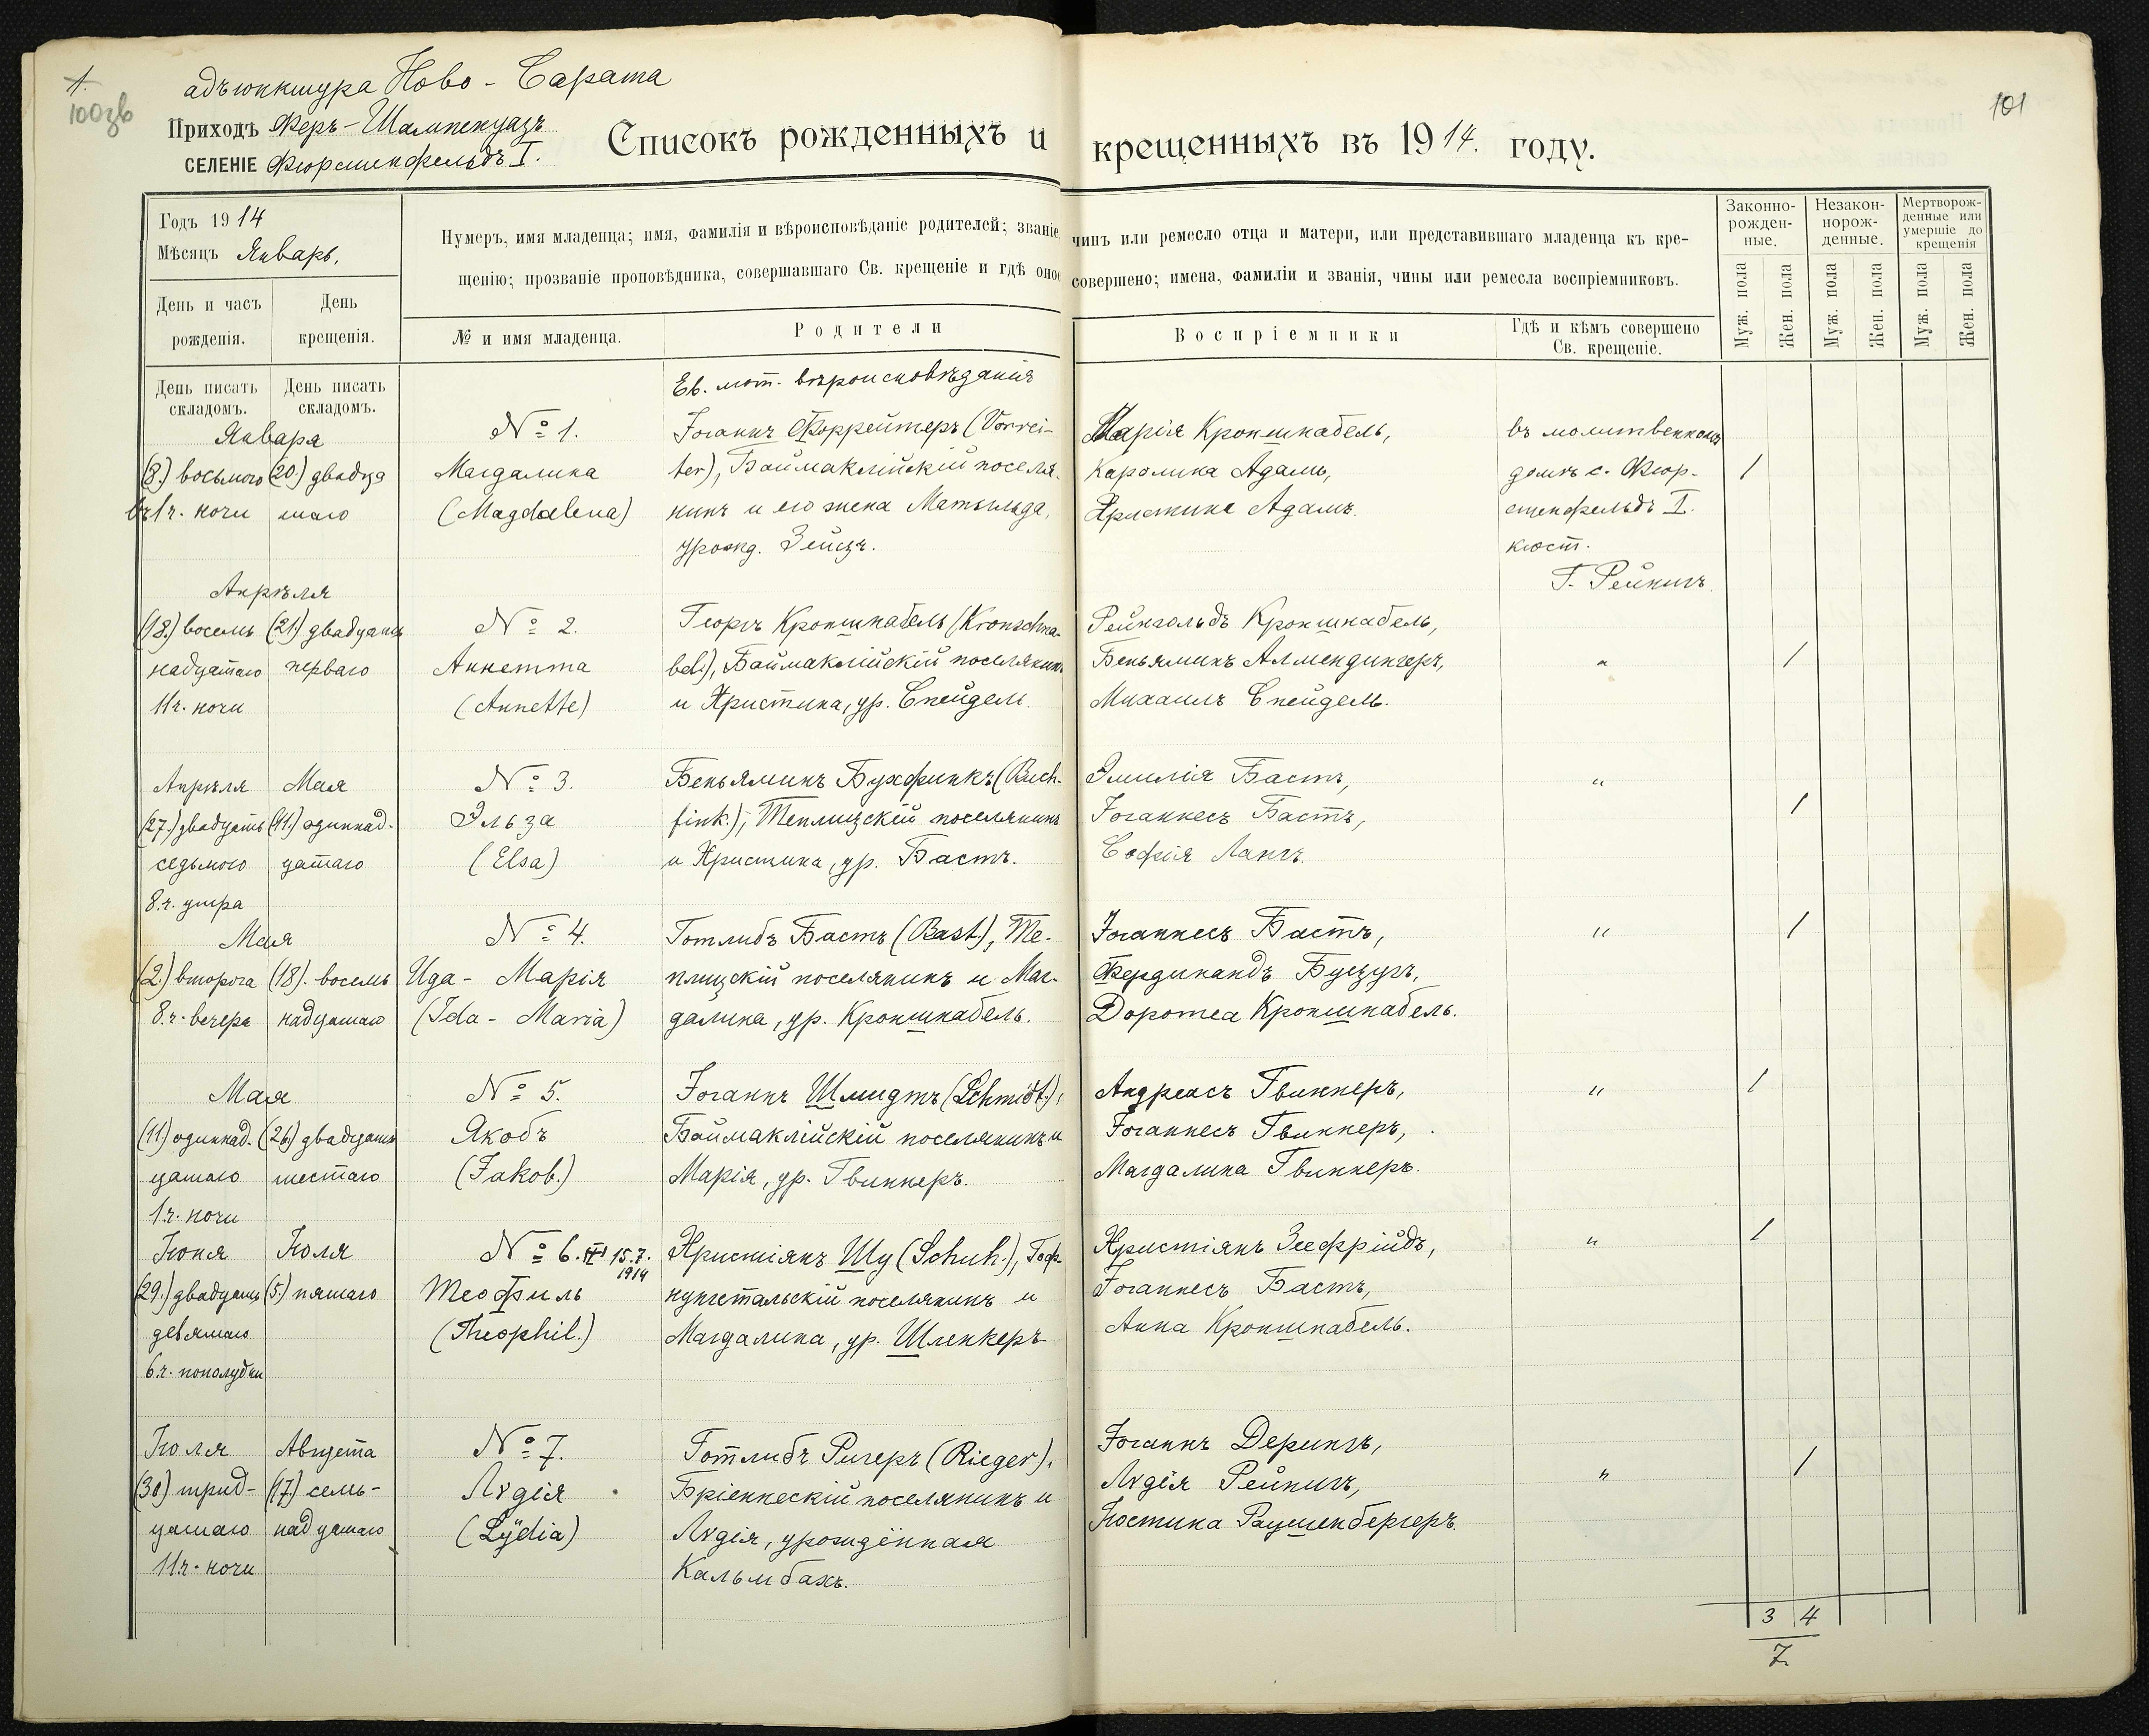 1.
100зв
101
адъюнктура Ново - Сарата
Приходъ Феръ-Шампенуазъ
СЕЛЕНІЕ Фюрстенфельдъ I.
Списокъ рожденныхъ и крещенныхъ въ 1914. году.
Годъ 1914
Мѣсяцъ Январь,
День и часъ рожденія.
День крещенія.
Нумеръ, имя младенца; имя, фамилія и вѣроисповѣданіе родителей; званіе, чинъ или ремесло отца и матери, или представившаго младенца къ кре-
щенію; прозваніе проповѣдника, совершавшаго Св. крещеніе и гдѣ оное совершено; имена, фамиліи и званія, чины или ремесла воспріемниковъ.
№ и имя младенца.
Родители
Воспріемники
Гдѣ и кѣмъ совершено
Св. крещеніе.
Законно-
рожден-
ные.
Незакон-
норож-
денные.
Мертворож-
денные или
умершіе до
крещенія
Муж. пола
Жен. пола
Муж. пола
Жен. пола
Муж. пола
Жен. пола
День писать
складомъ.
День писать
складомъ.
Января
(8.) восьмого
въ 1 ч. ночи
(20.) двадца
таго
№ 1.
Магдалина
(Magdalena)
Ев. лют. вѣроисповѣданія
Іоганнъ Форрейтеръ (Vorrei-
ter), Баймаклійскій поселя-
нинъ и его жена Матильда,
урожд. Зейцъ.
Марія Кроншнабель,
Каролина Адамъ,
Христине Адамъ.
въ молитвенномъ
домѣ с. Фюр-
стенфельдъ I.
кюст.
Г. Рейнигъ.
/
Апрѣля
(18.) восемь
надцатаго
11 ч. ночи
(21.) двадцать
перваго
№ 2.
Аннетта
(Annette)
Георгъ Кроншнабель (Kronschna-
bel.), Баймаклійскій поселянинъ
и Христина, ур. Спейдель.
Рейнгольдъ Кроншнабель,
Беньяминъ Алмендингеръ,
Михаилъ Спейдель.
"
/
Апрѣля
(27.) двадцать
седьмого
8. ч. утра
Мая
(11.) одиннад-
цатаго
№ 3.
Эльза
(Elsa)
Беньяминъ Бухфинкъ (Buch-
fink.), Теплицскій поселянинъ
и Христина, ур. Бастъ.
Эмилія Бастъ,
Іоганнесъ Бастъ,
Софія Лангъ.
"
/
Мая
(2.) второго
8. ч. вечера
(18). восемь
надцатаго
№ 4.
Ида - Марія
(Ida - Maria)
Готлибъ Бастъ (Bast.), Те-
плицскій поселянинъ и Маг-
далина, ур. Кроншнабель.
Іоганнесъ Бастъ,
Фердинандъ Буцугъ,
Доротеа Кроншнабель.
"
/
Мая
(11) одиннад-
цатаго
1 ч. ночи
(26) двадцать
шестаго
№ 5.
Якобъ
(Jakob.)
Іоганнъ Шмидтъ (Schmidt.),
Баймаклійскій поселянинъ и
Марія, ур. Гвиннеръ.
Андреасъ Гвиннеръ,
Іоганнесъ Гвиннеръ,
Магдалина Гвиннеръ.
"
/
Іюня
(29.) двадцать
девятаго
6 ч. пополудни
Іюля
(5.) пятаго
№ 6. 15.7.
1914
Теофиль
(Theophil.)
Христіянъ Шу (Schuh.), Гоф-
нунгстальскій поселянинъ и
Магдалина, ур. Шленкеръ
Христіянъ Зеефрійдъ,
Іоганнесъ Бастъ,
Анна Кроншнабель.
"
/
Іюля
(30) трид-
цатаго
11 ч. ночи
Августа
(17) семь-
надцатаго
№ 7.
Лѵдія
(Lÿdia)
Готлибъ Ригеръ (Rieger).
Бріеннескій поселянинъ и
Лѵдія, урождённая
Кальмбахъ.
Іоганнъ Дерингъ,
Лѵдія Рейнигъ,
Юстина Раушенбергеръ.
"
/
3 4
7.